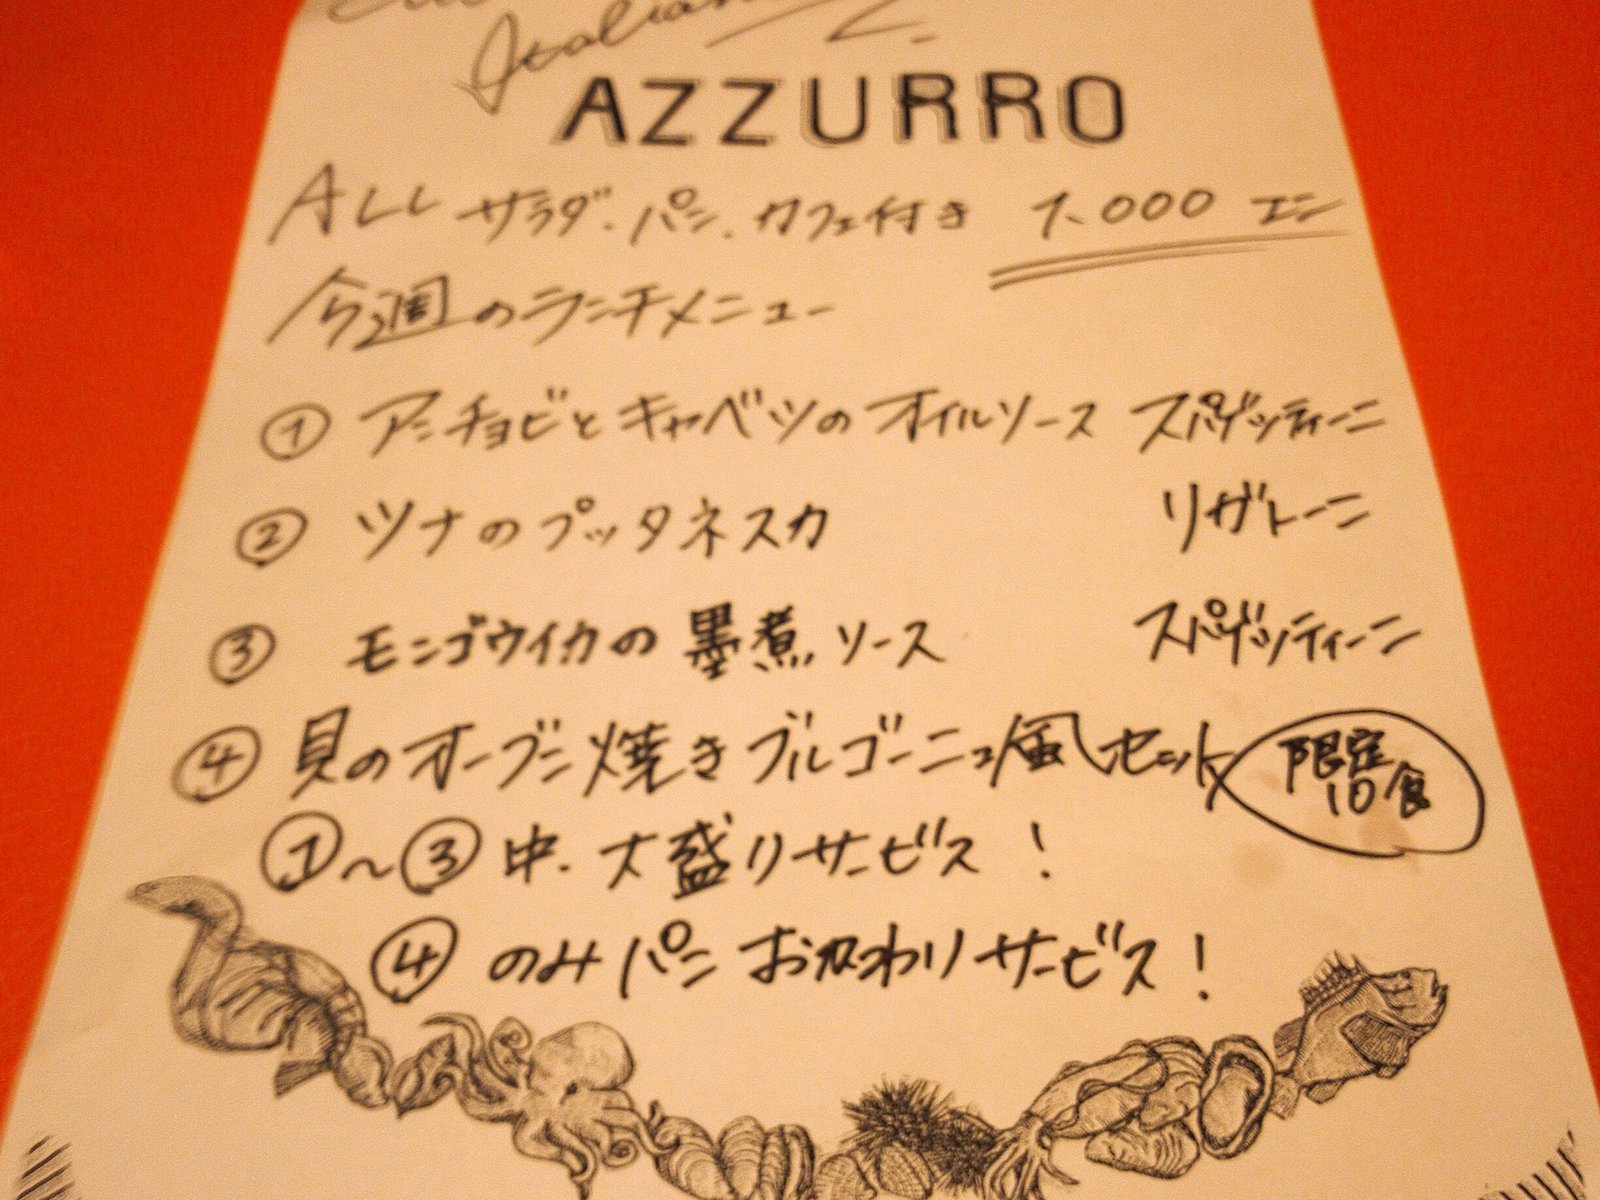 Italian
AZZURRO
ALL サラダ、パン、カフェ付き 1,000 エン
今週のランチメニュー
① アンチョビとキャベツの オイルソース スパゲッティーニ
② ツナのプッタネスカ リガトーニ
③ モンゴウイカの 墨煮ソース スパゲッティーニ
④ 貝のオーブン焼き ブルゴーニュ風セット 限定10食
①〜③ 中、大盛りサービス！
④ のみパン おかわりサービス！